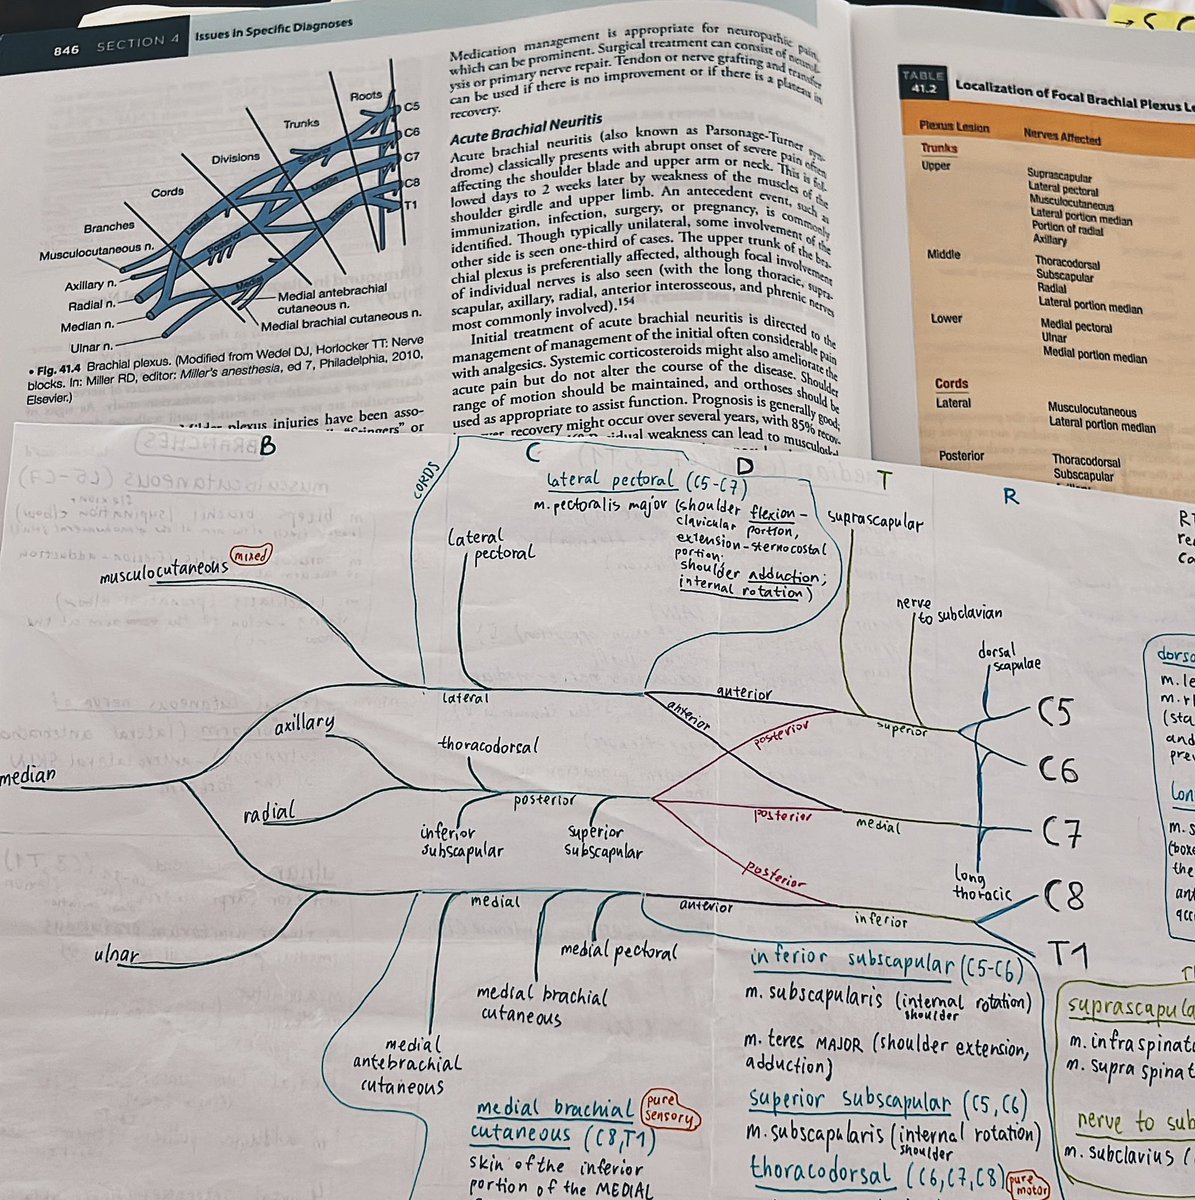 846 SECTION 4 Issues in Specific Diagnoses
Roots
Trunks
Divisions
Cords
Branches
C5
C6
C7
C8
T1
Superior
Middle
Inferior
Lateral
Posterior
Medial
Musculocutaneous n.
Axillary n.
Radial n.
Median n.
Ulnar n.
Medial antebrachial
cutaneous n.
Medial brachial cutaneous n.
• Fig. 41.4 Brachial plexus. (Modified from Wedel DJ, Horlocker TT: Nerve
blocks. In: Miller RD, editor: Miller's anesthesia, ed 7, Philadelphia, 2010,
Elsevier.)
plexus injuries have been asso-
"Stingers" or
Medication management is appropriate for neuropathic pain,
which can be prominent. Surgical treatment can consist of neurol-
ysis or primary nerve repair. Tendon or nerve grafting and transfer
can be used if there is no improvement or if there is a plateau in
recovery.
Acute Brachial Neuritis
Acute brachial neuritis (also known as Parsonage-Turner syn-
drome) classically presents with abrupt onset of severe pain often
affecting the shoulder blade and upper arm or neck. This is fol-
lowed days to 2 weeks later by weakness of the muscles of the
shoulder girdle and upper limb. An antecedent event, such as
immunization, infection, surgery, or pregnancy, is commonly
identified. Though typically unilateral, some involvement of the
other side is seen one-third of cases. The upper trunk of the bra-
chial plexus is preferentially affected, although focal involvement
of individual nerves is also seen (with the long thoracic, supra-
scapular, axillary, radial, anterior interosseous, and phrenic nerves
most commonly involved).154
Initial treatment of acute brachial neuritis is directed to the
management of management of the initial often considerable pain
with analgesics. Systemic corticosteroids might also ameliorate the
acute pain but do not alter the course of the disease. Shoulder
range of motion should be maintained, and orthoses should be
used as appropriate to assist function. Prognosis is generally good;
recovery might occur over several years, with 85% recov-
weakness can lead to
TABLE
41.2
Localization of Focal Brachial Plexus
Plexus Lesion Nerves Affected
Trunks
Upper Suprascapular
Lateral pectoral
Musculocutaneous
Lateral portion median
Portion of radial
Axillary
Middle Thoracodorsal
Subscapular
Radial
Lateral portion median
Lower Medial pectoral
Ulnar
Medial portion median
Cords
Lateral Musculocutaneous
Lateral portion median
Posterior Thoracodorsal
Subscapular
B
C
D
T
R
CORDS
lateral pectoral (C5-C7)
m. pectoralis major (shoulder flexion-
clavicular portion,
extension-sternocostal
portion;
shoulder adduction;
internal rotation)
lateral
pectoral
suprascapular
musculocutaneous mixed
nerve
to subclavian
dorsal
scapulae
lateral
anterior
anterior
posterior
superior
C5
C6
C7
C8
T1
median
axillary
radial
thoracodorsal
posterior
inferior
subscapular
superior
subscapular
posterior
medial
posterior
long
thoracic
medial
anterior
inferior
ulnar
medial pectoral
medial brachial
cutaneous
medial
antebrachial
cutaneous
inferior subscapular (C5-C6)
m. subscapularis (internal rotation)
shoulder
m. teres MAJOR (shoulder extension,
adduction)
superior subscapular (C5, C6)
m. subscapularis (internal rotation)
shoulder
thoracodorsal (C6, C7, C8) pure
motor
medial brachial pure
sensory
cutaneous (C8, T1)
skin of the inferior
portion of the MEDIAL
dorsa
m. le
m. r
(sta
and
pre
lon
m. s
(box
the
and
acc
suprascapula
m. infraspinat
m. supra spinat
nerve to sub
m. subclavius (